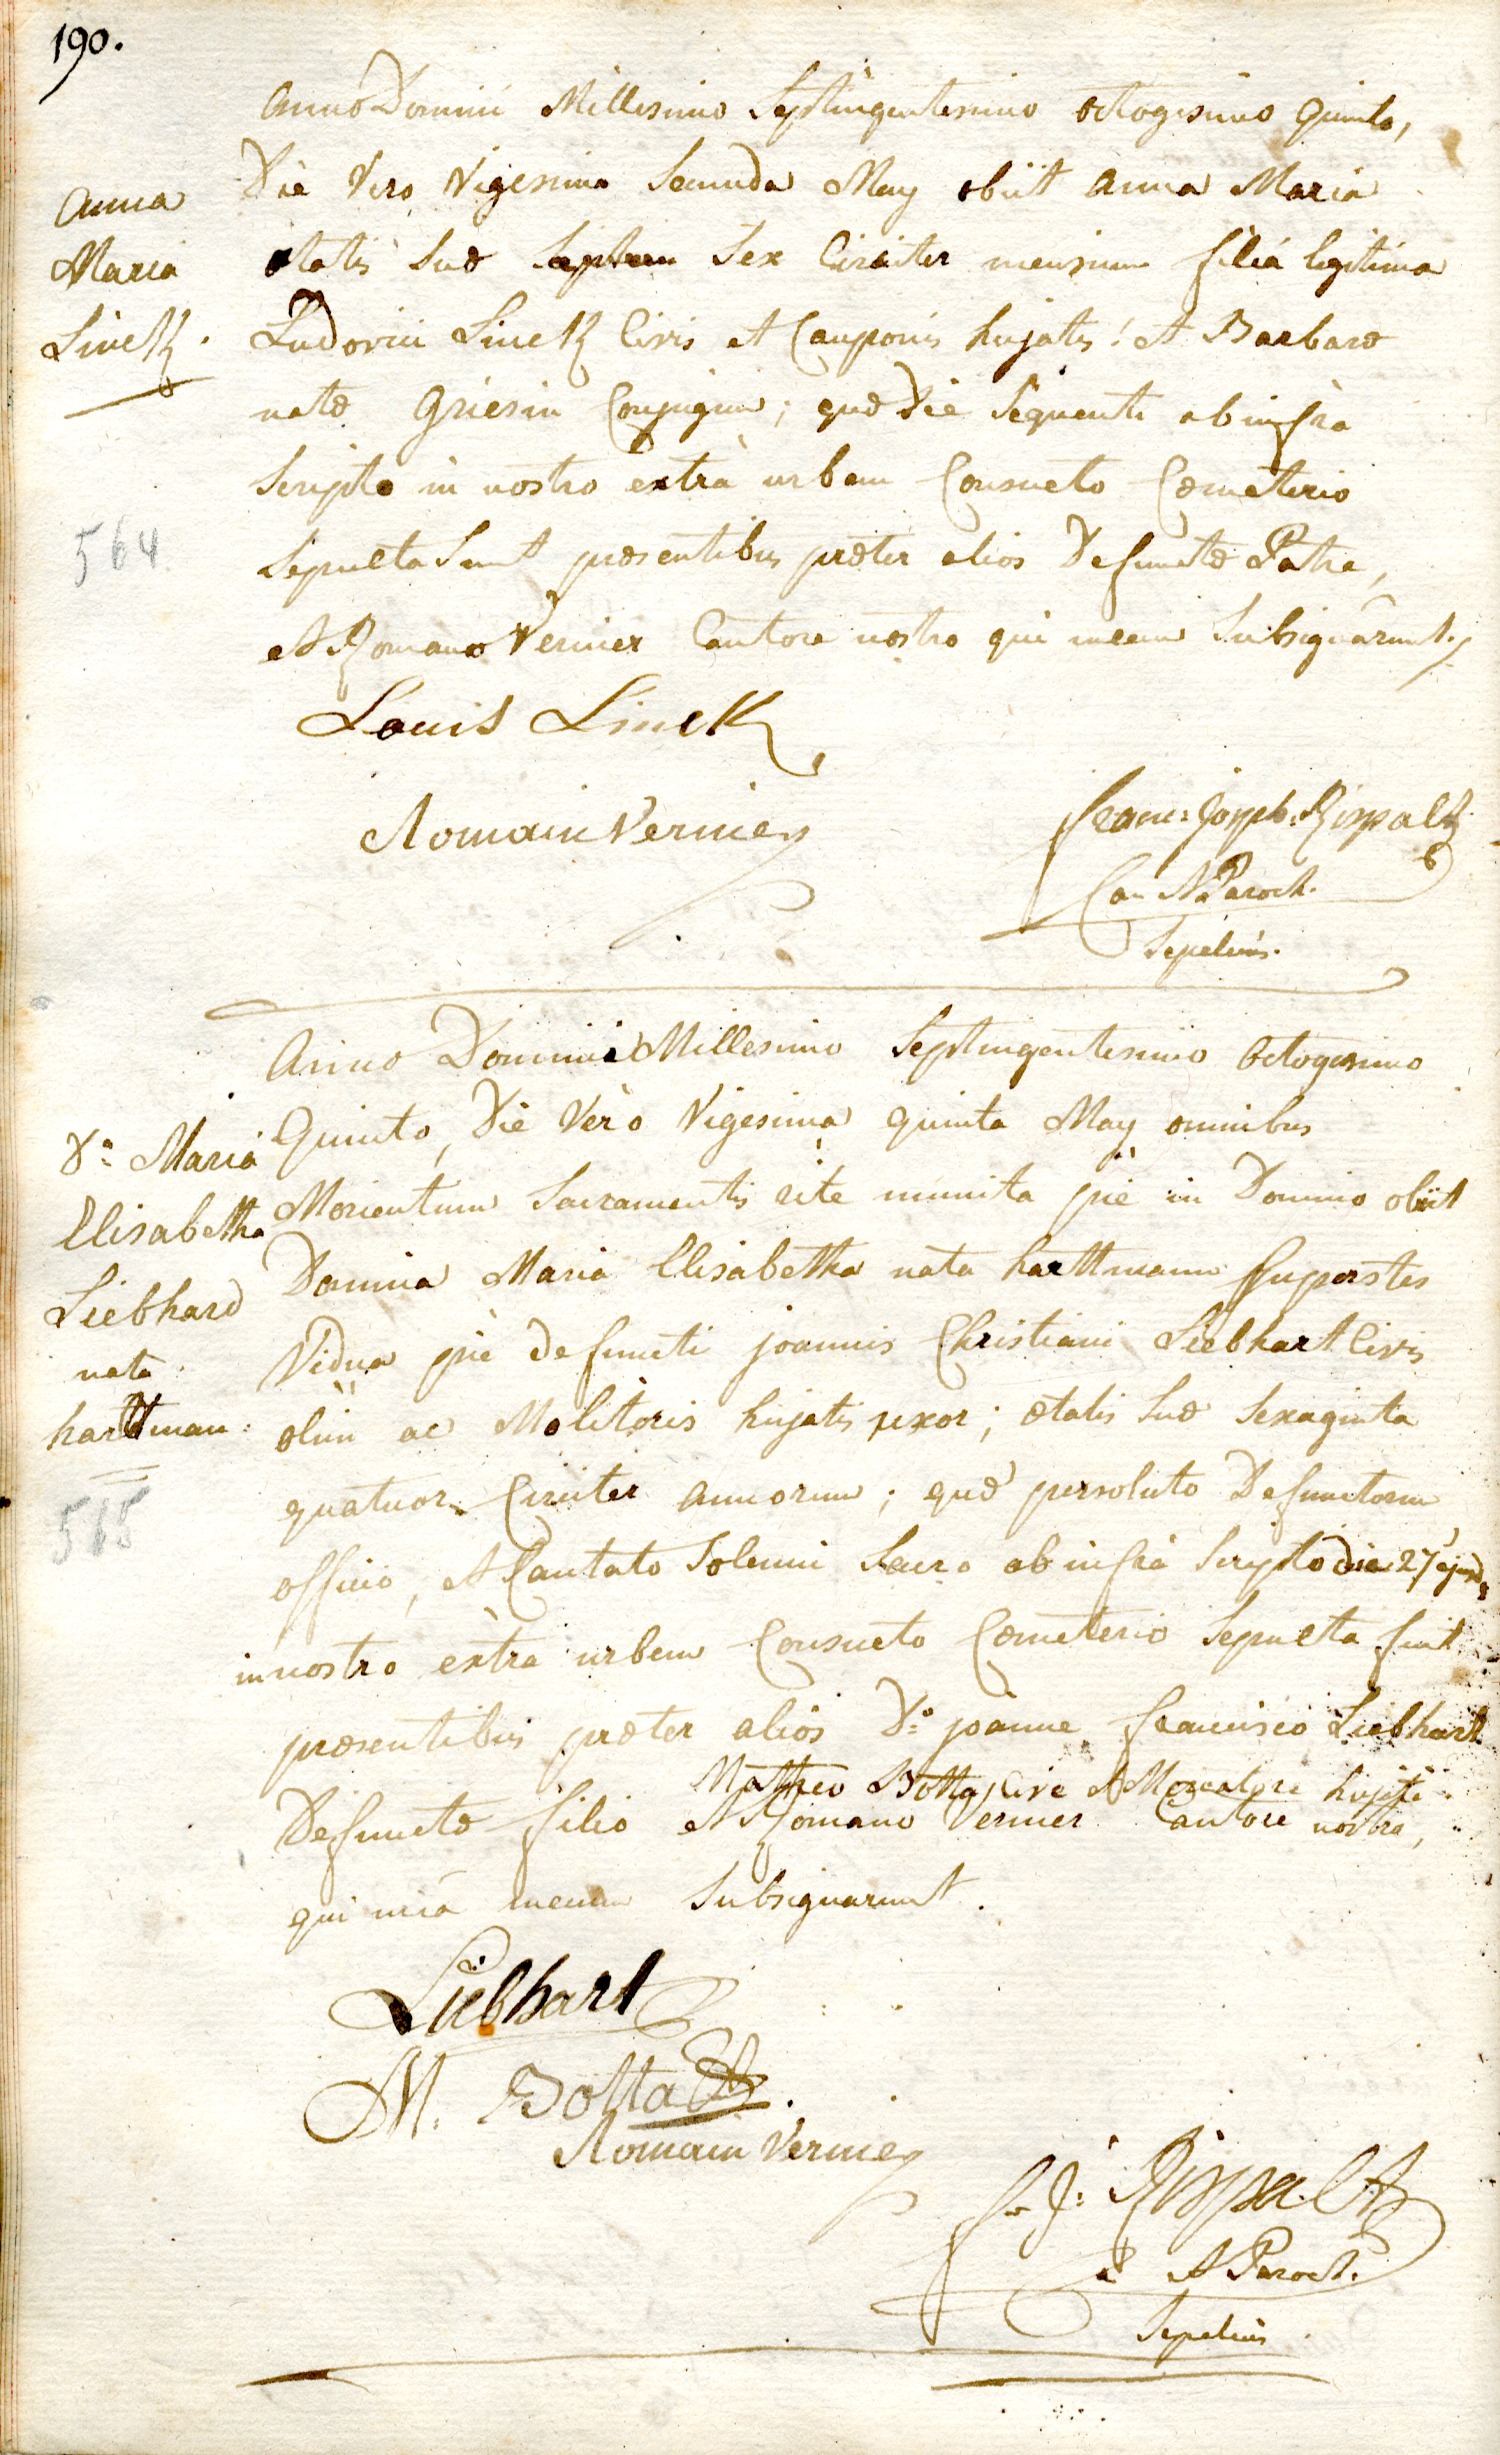 190.
Anno Domini Millesimo Septingentesimo octogesimo quinto,
Die Vero Vigesima Secunda May obiit Anna Maria
Anna
Maria
Linck.
ætatis suæ septem sex Circiter mensium filia legitima
Ludovici Linck Civis et Cauponis hujatis et Barbaræ
natæ Griesin Conjugum; quæ Die Sequenti ab infra
Scripto in nostro extra urbem Consueto Cœmeterio
564
Sepulta fuit præsentibus præter alios Defunctæ Patre,
et Romano Vernier Cantore nostro qui mecum Subsignârunt.
Louis Linck
Romain Vernier
Franc: Joseph: Rispalt
Can. A Paroch.
Sepeliens.
Anno Domini Millesimo Septingentesimo Octogesimo
Quinto, Die Vero Vigesima quinta May omnibus
Da Maria
Elisabetha
Liebhard
nata
hartman:
565
Morientium Sacramentis rite munita piè in Domino obiit
Domina Maria Elisabetha nata harttmann superstes
Vidua piè defuncti joannis Christiani Liebhart Civis
olim ac Molitoris hujatis uxor; ætatis suæ sexaginta
quatuor Circiter annorum; quæ persoluto Defunctorum
officio, et Cantato Solemni Sacro ab infra Scripto die 27 ejusd:
in nostro extra urbem Consueto Cœmeterio Sepulta fuit
præsentibus præter alios Do joanne francisco Liebhart
Mattheo Botta, Cive et Mercatore hujati
Defunctæ filio et Romano Vernier Cantore nostro,
qui mecum Subsignarunt.
Liebhart
M. Botta
Romain Vernier
fr. J: Rispalt
A Paroch.
Sepeliens.